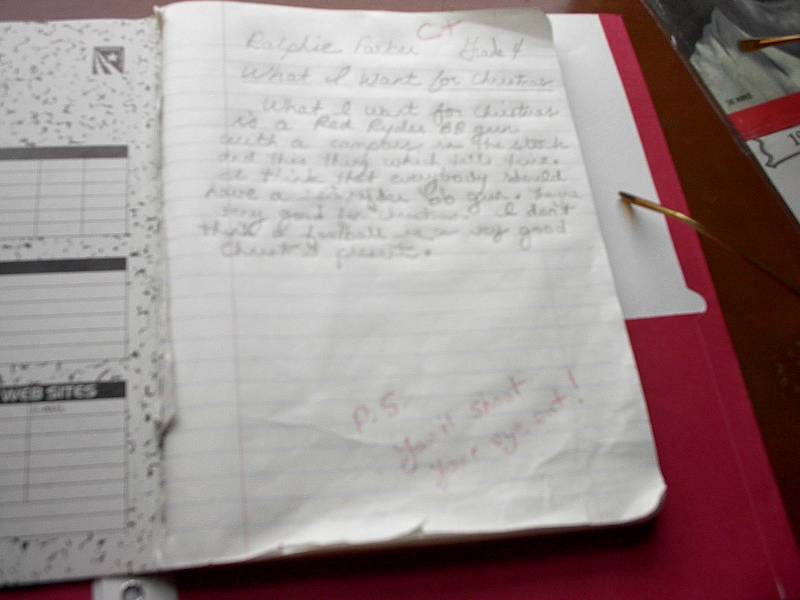 C+
Ralphie Parker Grade 4
What I Want for Christmas
What I want for Christmas
is a Red Ryder BB gun
with a compass in the stock
and this thing which tells time.
I think that everybody should
have a Red Ryder bb gun. They're
very good for Christmas. I don't
think a football is a very good
Christmas present.
P.S
You'll shoot
your eye out!
WEB SITES